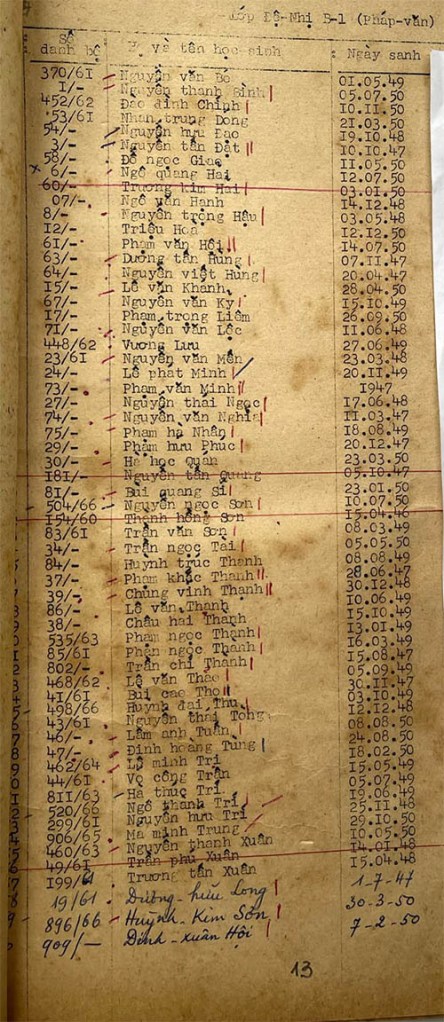 Lớp Đệ-Nhị B-1 (Pháp-văn)
Số danh bộ : Họ và tên học sinh : Ngày sanh
370/61 Nguyễn văn Bê 01.05.49
1/- Nguyễn thanh Bình 05.07.50
452/62 Đào đình Chinh 10.11.50
53/61 Nhan trung Dong 21.03.50
54/- Nguyễn hữu Đạo 19.10.48
3/- Nguyễn tấn Đạt 10.10.47
58/- Đỗ ngọc Giao 11.05.50
6/- Ngô quang Hai 12.07.50
60/- Trương kim Hai 03.01.50
07/- Ngô văn Hanh 14.12.48
8/- Nguyễn trọng Hậu 03.05.48
12/- Triệu Hoà 12.12.50
61/- Phạm văn Hội 14.07.50
63/- Dương tấn Hùng 07.11.47
64/- Nguyễn viết Hùng 20.04.47
15/- Lê văn Khanh 28.04.50
67/- Nguyễn văn Ky 15.10.49
17/- Phạm trọng Liêm 26.09.50
71/- Nguyễn văn Lộc 11.06.48
448/62 Vương Lưu 27.06.49
23/61 Nguyễn văn Mến 23.03.48
24/- Lê phát Minh 20.11.49
73/- Phạm văn Minh 1947
27/- Nguyễn thai Ngọc 17.06.48
74/- Nguyễn văn Nghĩa 11.03.47
75/- Phạm hà Nhân 18.08.49
29/- Phạm hưu Phuc 20.12.47
30/- Hà học Quán 23.03.50
181/- Nguyễn tấn Quang 05.10.47
81/- Bùi quang Si 23.01.50
504/66 Nguyễn ngọc Sơn 10.07.50
154/60 Thạnh hồng Sơn 15.04.46
83/61 Trần văn Sơn 08.03.49
34/- Trần ngọc Tai 05.05.50
84/- Huỳnh trúc Thanh 08.08.49
37/- Phạm khắc Thanh 28.06.47
39/- Chung vinh Thanh 30.12.48
86/- Lê văn Thanh 10.06.49
38/- Châu hai Thanh 15.10.49
535/63 Phạm ngọc Thạnh 13.01.49
85/61 Phan ngọc Thạnh 16.03.49
802/- Trần chi Thanh 15.08.47
468/62 Lê văn Thảo 05.09.49
41/61 Bùi cao Thọ 30.11.47
498/66 Huỳnh đại Thu 03.10.49
43/61 Nguyễn thái Tong 12.12.48
46/- Lâm anh Tuấn 08.08.50
47/- Đinh hoàng Tùng 24.08.50
462/64 Lý minh Tri 18.02.50
44/61 Võ công Trân 15.05.49
811/63 Hà thuc Trí 05.07.49
520/66 Ngô thanh Trí 19.06.49
299/61 Nguyễn hưu Trí 25.11.48
906/65 Ma minh Trung 29.10.50
460/63 Nguyễn thanh Xuân 10.05.50
49/61 Trần phú Xuân 14.01.48
199/61 Trương tấn Xuân 15.04.48
19/61 Dương-hữu Long 1-7-47
896/66 Huỳnh-Kim Sơn 30-3-50
909/- Đinh-xuân Hội 7-2-50
13